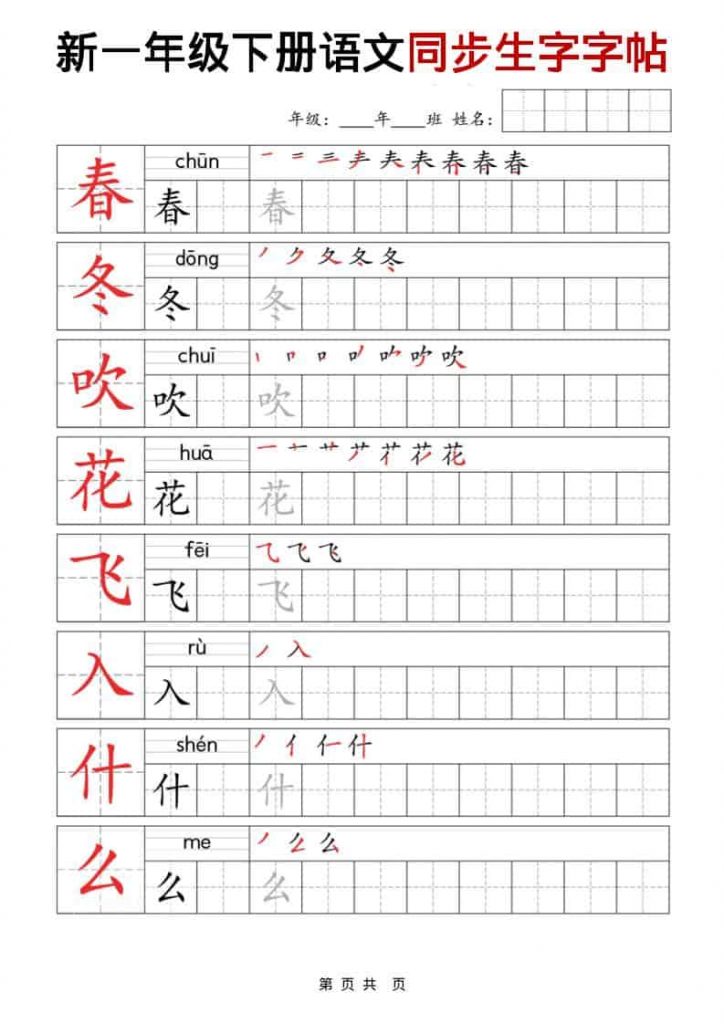 新一年级下册语文同步生字字帖
年级：____年____班 姓名：
春 chūn 一 二 三 𡗗 夫 表 春 春 春
春 春
冬 dōng 丿 ク 夂 冬 冬
冬 冬
吹 chuī 丨 口 口 吹 吹 吹 吹
吹 吹
花 huā 一 十 艹 艹 花 花 花
花 花
飞 fēi 乁 飞 飞
飞 飞
入 rù 丿 入
入 入
什 shén 丿 亻 仁 什
什 什
么 me 丿 么 么
么 么
第 页 共 页